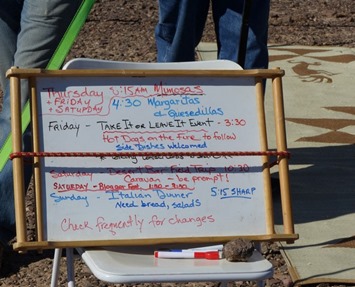 Thursday 8:15AM Mimosas
+ FRIDAY
+ SATURDAY
4:30 Margaritas
& Quesedillas
Friday - TAKE IT or LEAVE IT EVENT - 3:30
Hot Dogs on the Fire to follow
side dishes welcomed
Saturday - Desert Bar Field Trip 10:30
Caravan - be prompt!
SATURDAY - Blogger Fest,
Sunday - Italian Dinner 5:15 SHARP
Need bread, salads
Check frequently for changes